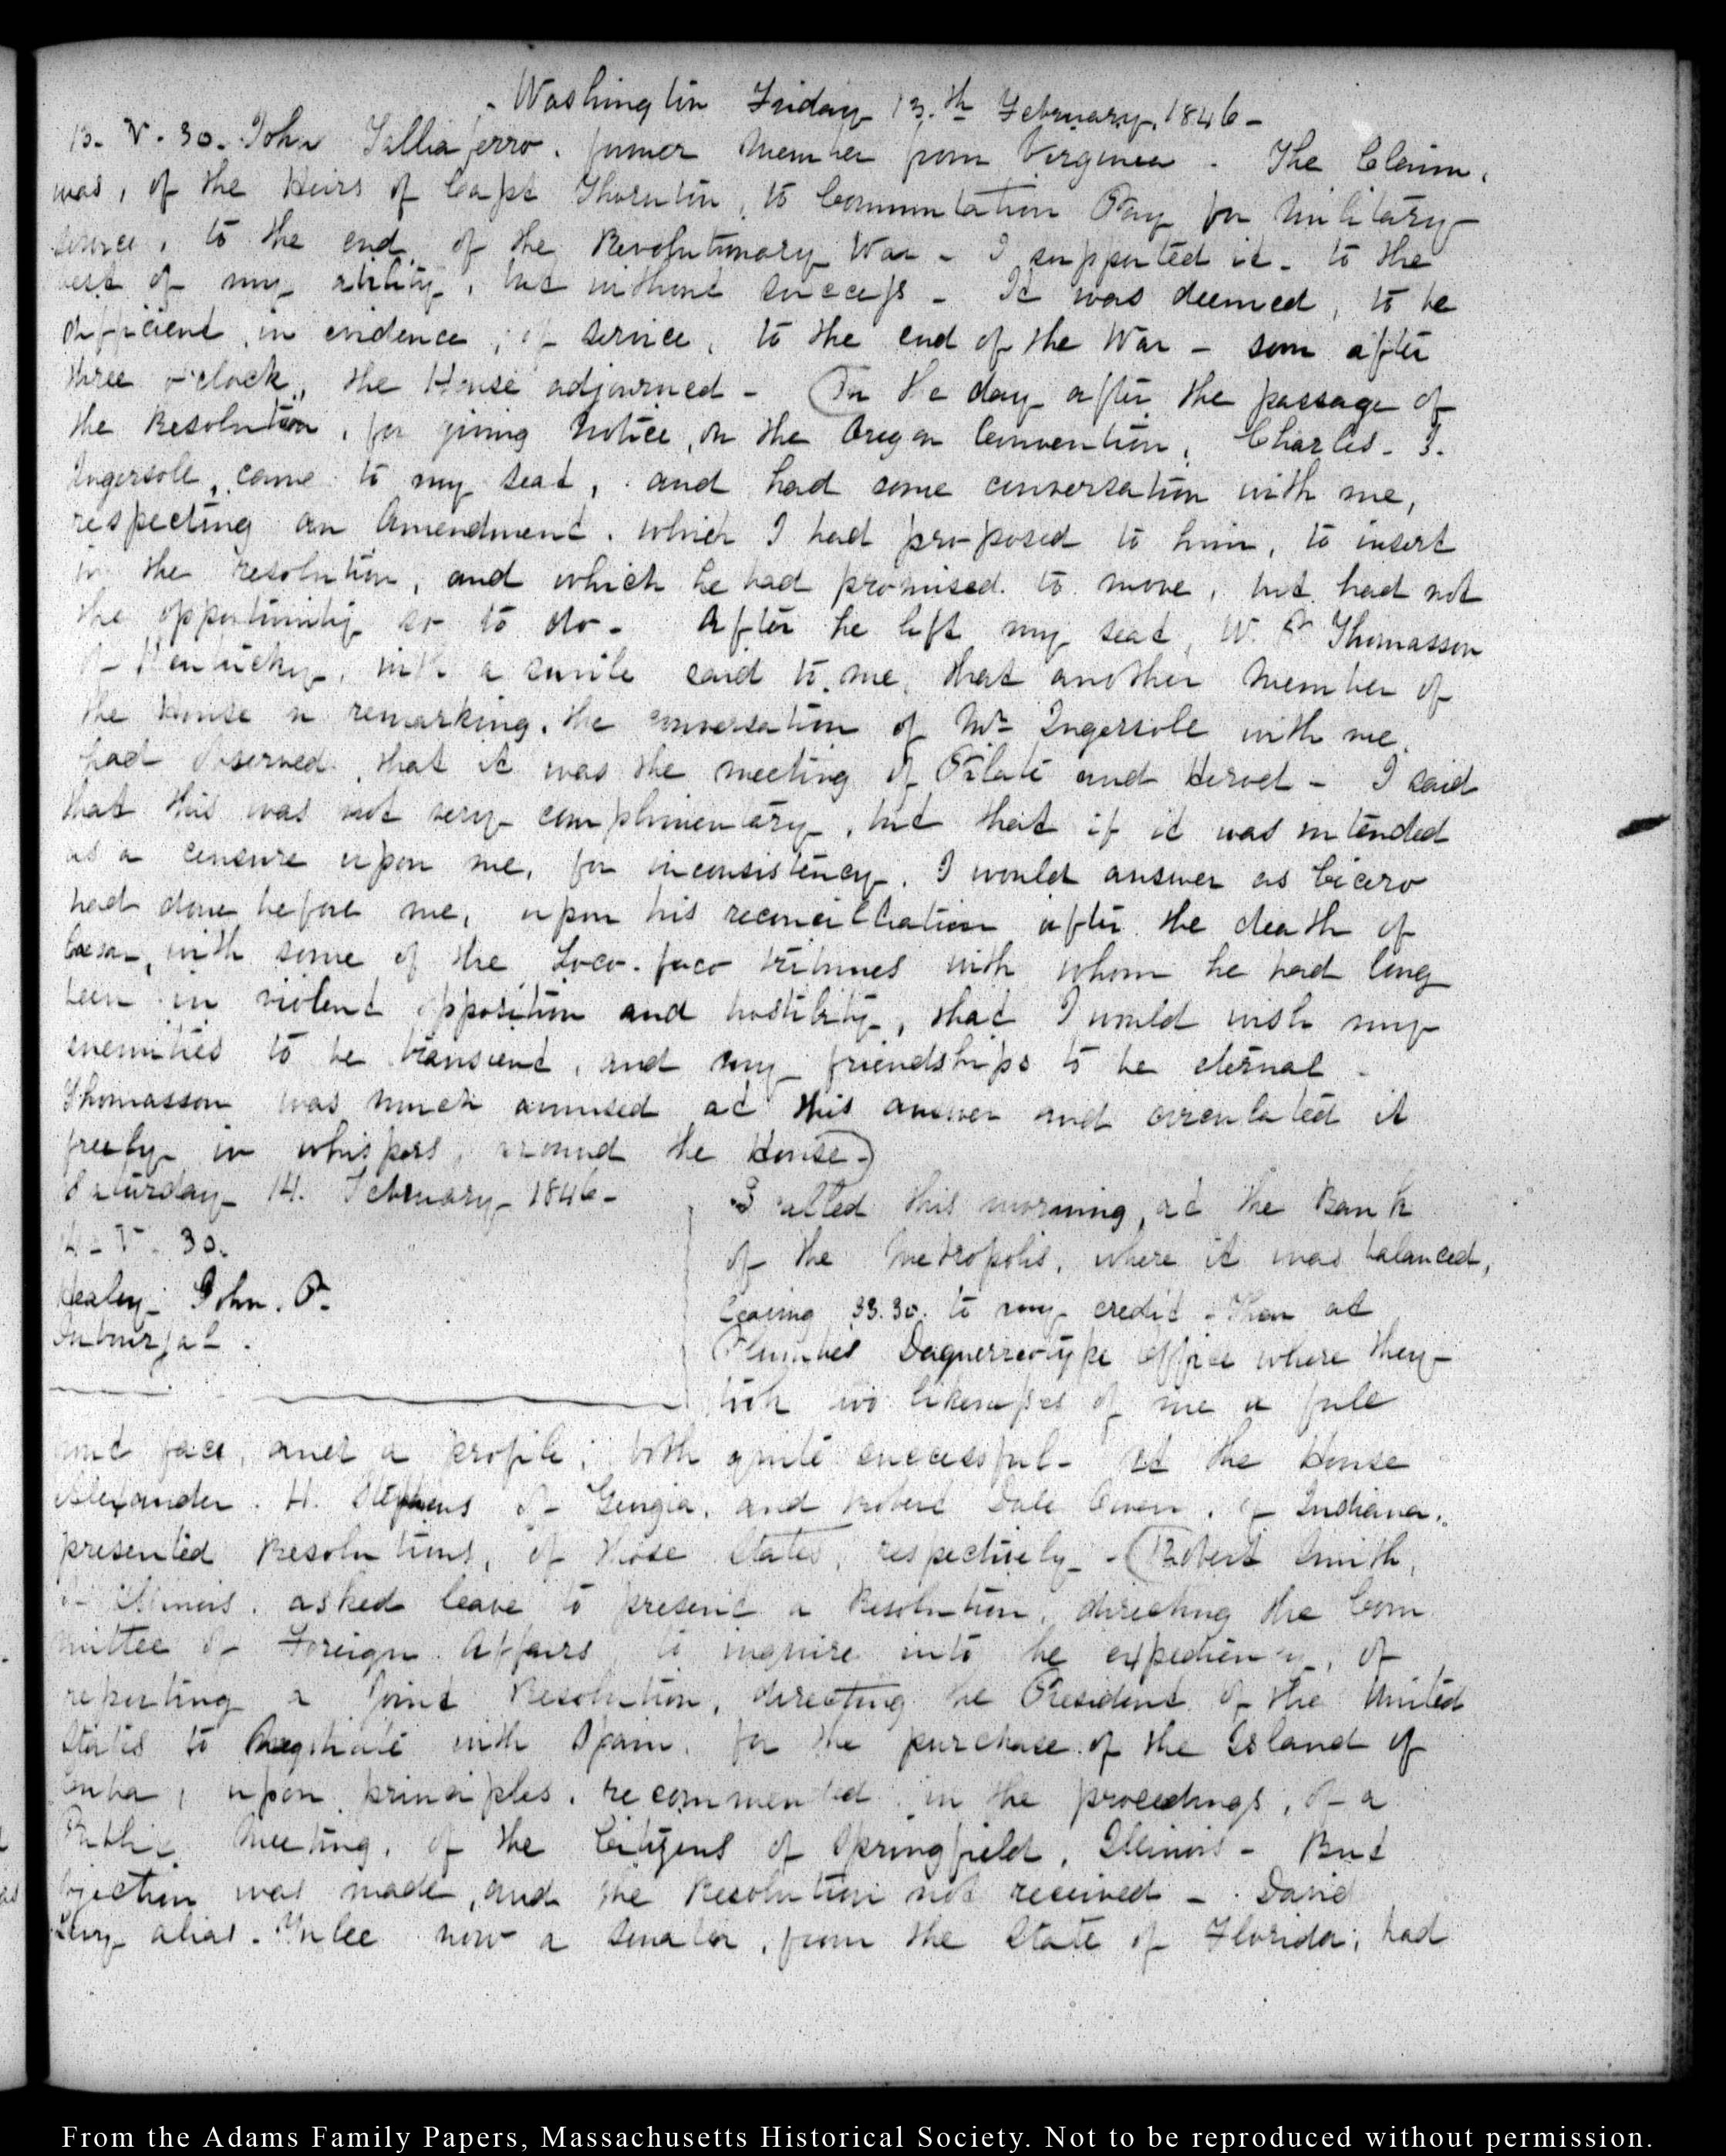 Washington Friday 13.th February, 1846-
13. V. 30. John Talliaferro. former Member from Virginia. The Claim,
was, of the Heirs of Capt Thornton, to Commutation Pay for Military
service, to the end, of the Revolutionary War - I supported it - to the
best of my ability, but without success - It was deemed, to be
deficient, in evidence, of service, to the end of the War - soon after
three o'clock, the House adjourned - (On the day after the passage of
the Resolution, for giving Notice, on the Oregon Convention, Charles. J.
Ingersoll, came to my seat, and had some conversation with me,
respecting an Amendment. which I had proposed to him, to insert
in the resolution, and which he had promised to move, but had not
the opportunity so to do - After he left my seat, W. P Thomasson
of Kentucky, with a smile said to me, that another Member of
the House in remarking, the conversation of Mr Ingersoll with me,
had observed, that it was the meeting of Pilate and Herod - I said
that this was not very complimentary, but that if it was intended
as a censure upon me, for inconsistency, I would answer as Cicero
had done before me, upon his reconciliation after the death of
Caesar, with some of the Loco-foco tribunes with whom he had long
been in violent opposition and hostility, that I would wish my
enmities to be transient, and my friendships to be eternal -
Thomasson was much amused at this answer and circulated it
freely in whispers, around the House -)
Saturday 14. February 1846 -
14 - V. 30.
Healey John. P.
I called this morning, at the Bank
of the Metropolis, where it was balanced,
leaving 33.30. to my credit - then at
Plumbe's Daguerreotype Office where they
took two likenesses of me a full
and face, and a profile; both quite successful - At the House
Alexander. H. Stephens of Georgia, and Robert Dale Owen, of Indiana,
presented Resolutions, of those States, respectively - (Robert Smith,
of Illinois, asked leave to present a Resolution, directing the Com
mittee of Foreign Affairs to inquire into the expediency, of
reporting a Joint Resolution, directing the President of the United
States to Negotiate with Spain, for the purchase of the Island of
Cuba, upon principles, recommended in the proceedings, of a
Public Meeting, of the Citizens of Springfield, Illinois - But
objection was made, and the Resolution not received - David
Levy alias Yulee now a Senator, from the State of Florida, had
From the Adams Family Papers, Massachusetts Historical Society. Not to be reproduced without permission.